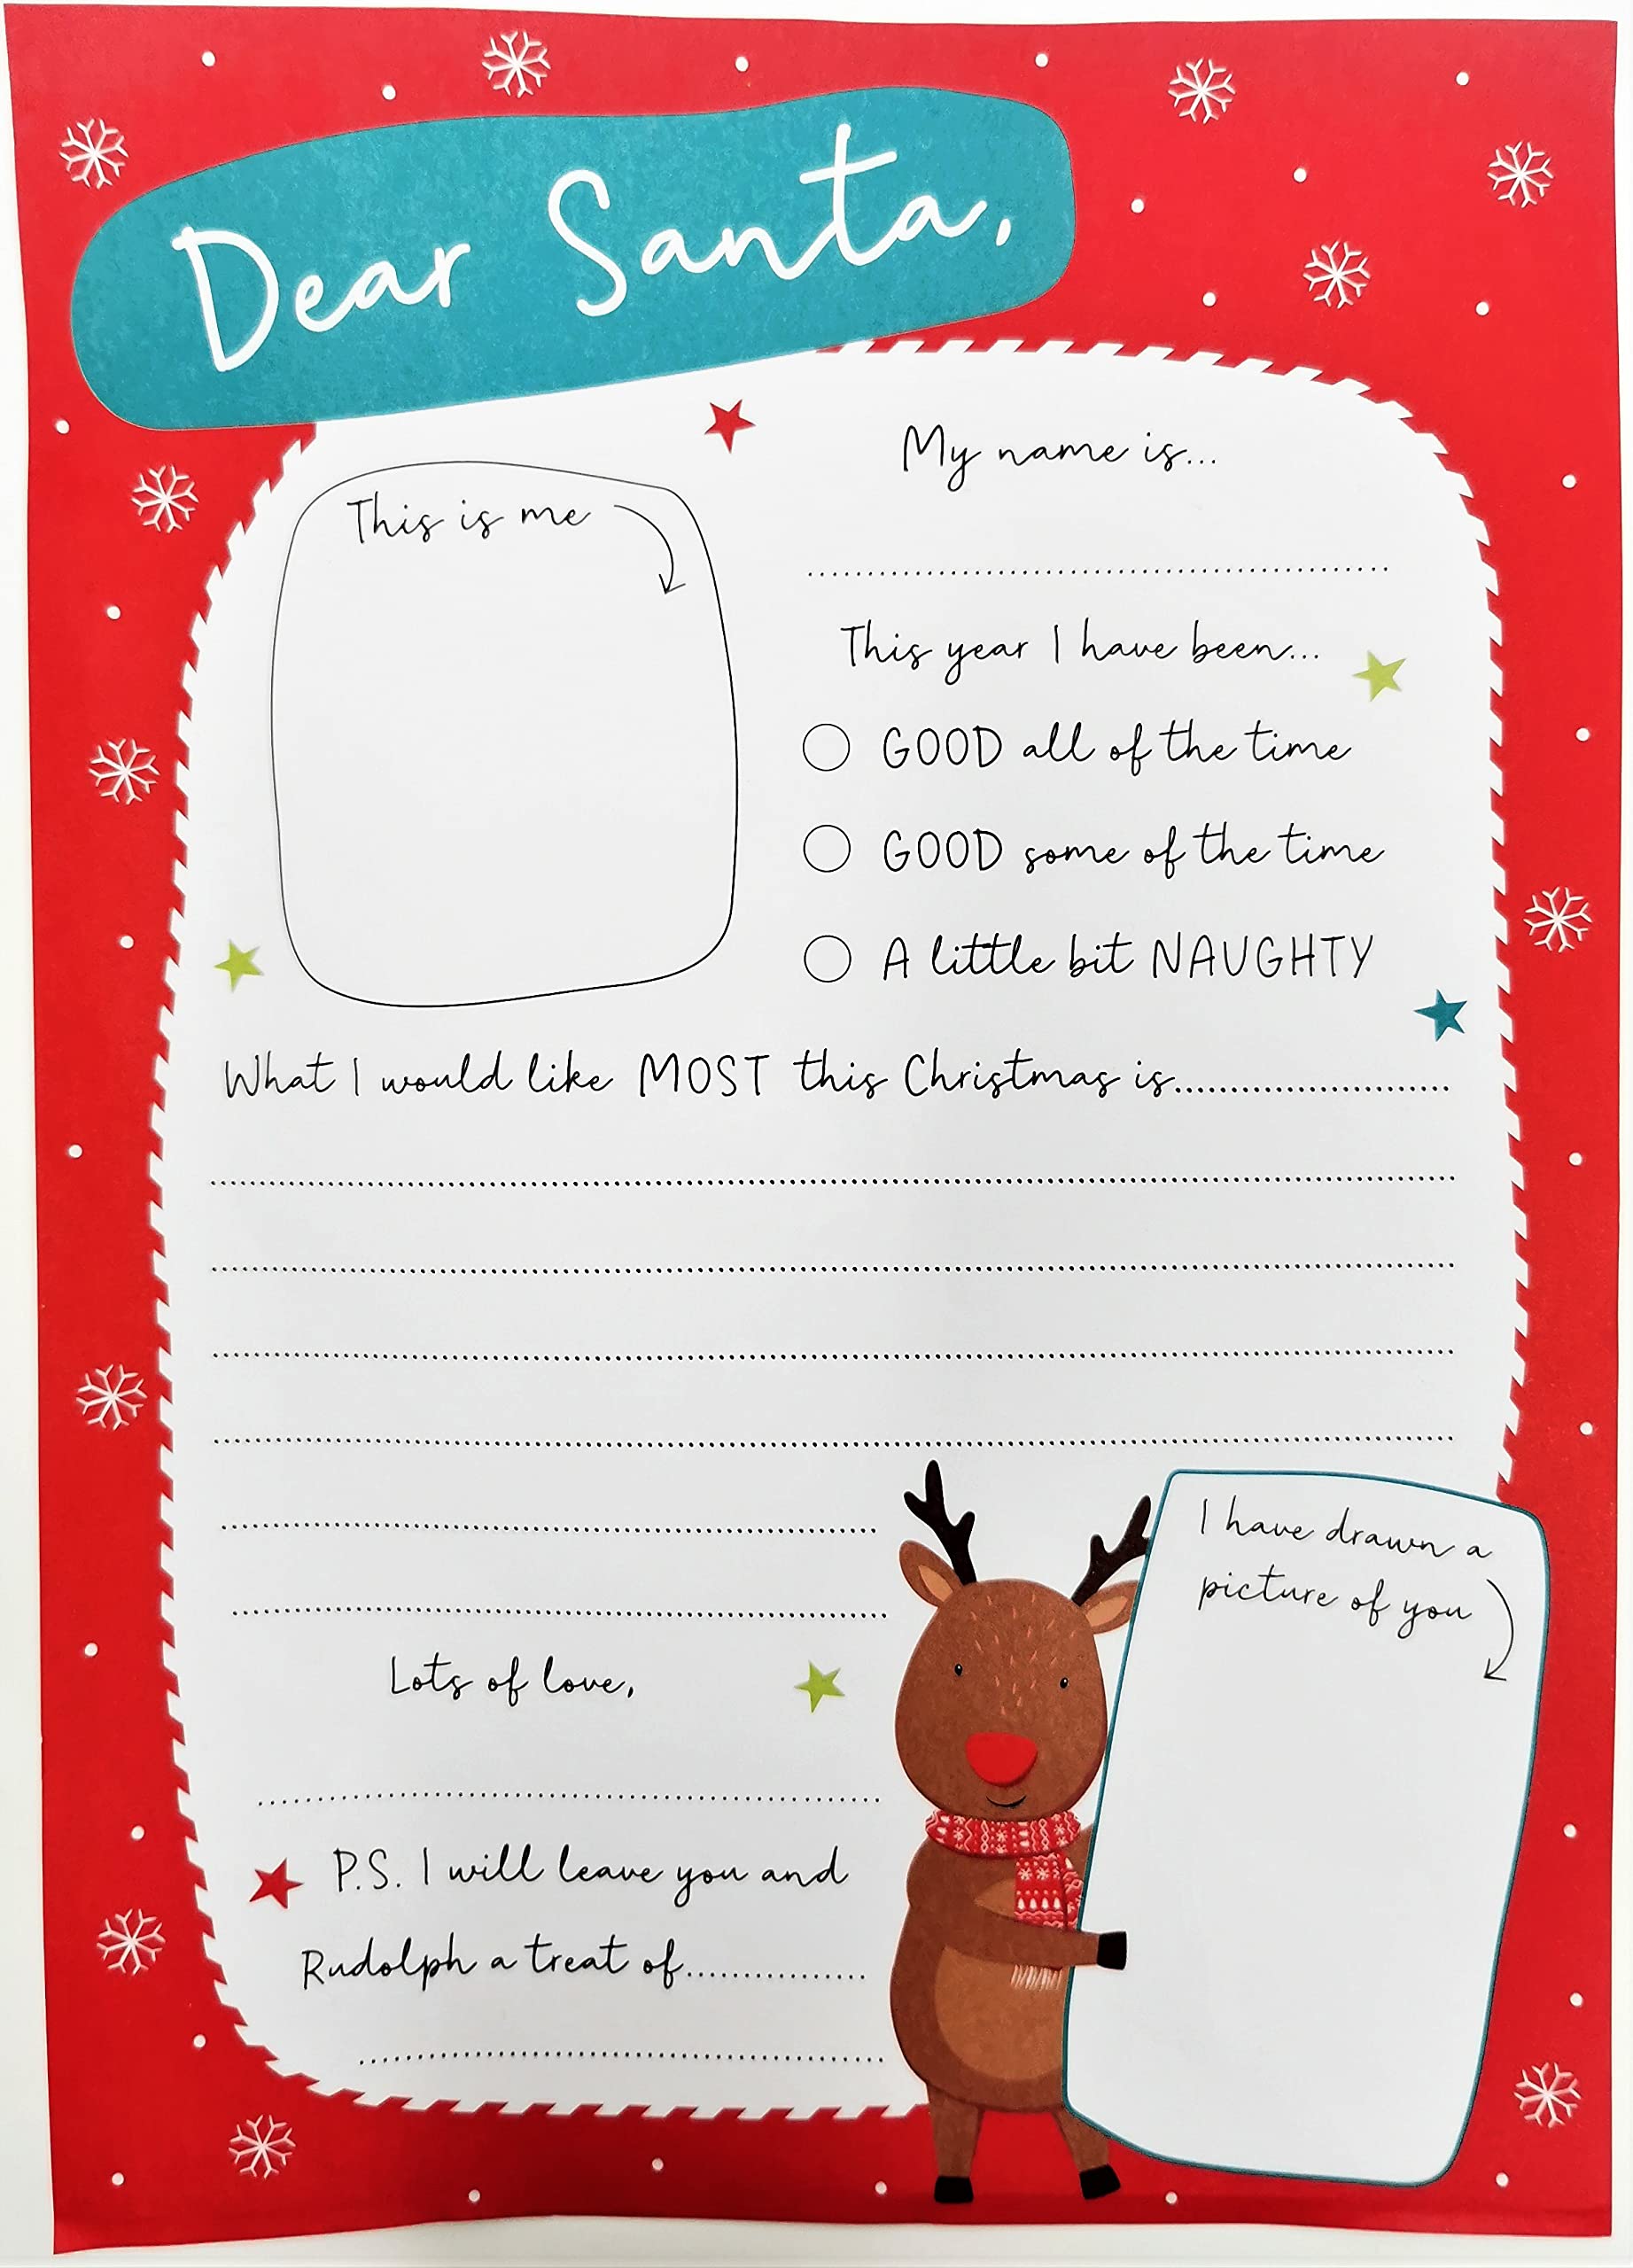 Dear Santa,
This is me
My name is...
This year I have been...
GOOD all of the time
GOOD some of the time
A little bit NAUGHTY
What I would like MOST this Christmas is........................
Lots of love,
P.S. I will leave you and
Rudolph a treat of................
I have drawn a
picture of you